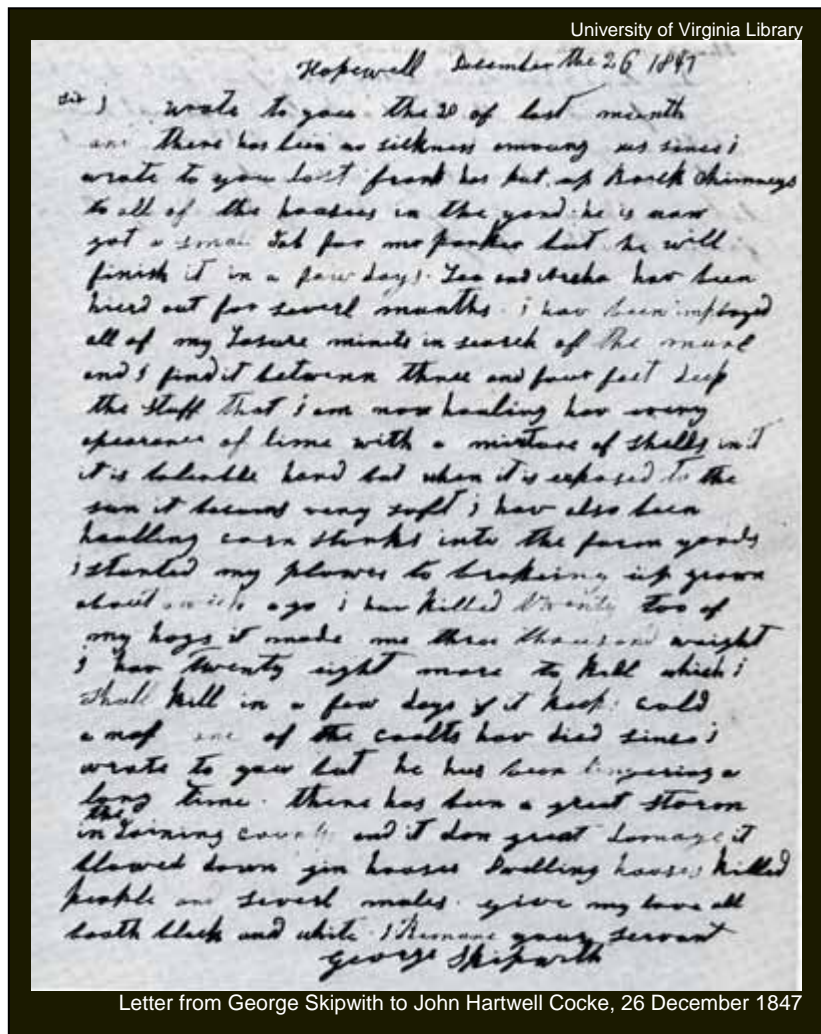 University of Virginia Library
Hopewell December the 26 1847
Sir i wrote to you the 20 of last month
and there has bein no sickness amoung us sines i
wrote to you last frank has put up Brick chimneys
to all of the houses in the yard he is now
got a smal Job for mr parker but he will
finish it in a few days. Lee and Archa hav been
hierd out for severl months. i hav been imployed
all of my Lasure minits in search of the marl
and i find it between three and four feet deep
the stuff that i am now hauling hav every
apearance of lime with a mixture of shells in it
it is tolerable hard but when it is exposed to the
sun it becoms very soft i hav also been
haulling corn storks into the farm yards
i started my plowes to brakeing up groun
about a week ago i hav killed twenty too of
my hogs it made me three thousand weight
i hav twenty eight more to kill which i
shall kill in a few days if it keep cold
a nof one of the coalts hav died sines i
wrote to you but he has been lingering a
long time. there has been a great storm
in the Joining county and it don great damage it
blowed down gin houses Dwelling houses killed
people and severl mules. give my love all
booth black and white i Remane your servant
George Skipwith
Letter from George Skipwith to John Hartwell Cocke, 26 December 1847